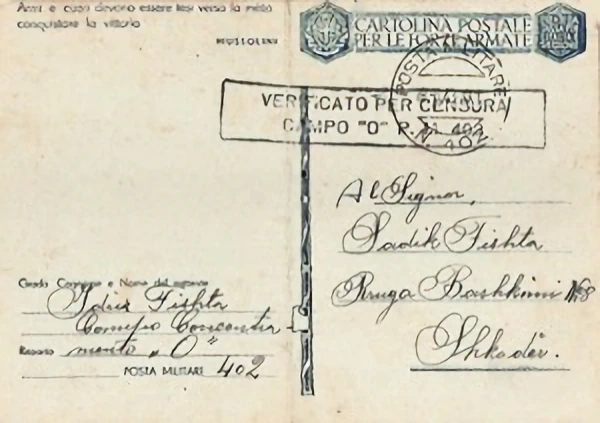 Armi e cuori devono essere tesi verso la mèta:
conquistare la vittoria
MUSSOLINI
CARTOLINA POSTALE
PER LE FORZE ARMATE
POSTA MILITARE
N. 402
VERIFICATO PER CENSURA
CAMPO "O" P. M. 402
Al Signor,
Sadik Fishta
Rruga Bashkimi №8
Shkodër.
Grado Cognome e Nome del mittente
Idriz Fishta
Campo Concentra-
Reparto mento „O"
POSTA MILITARE 402